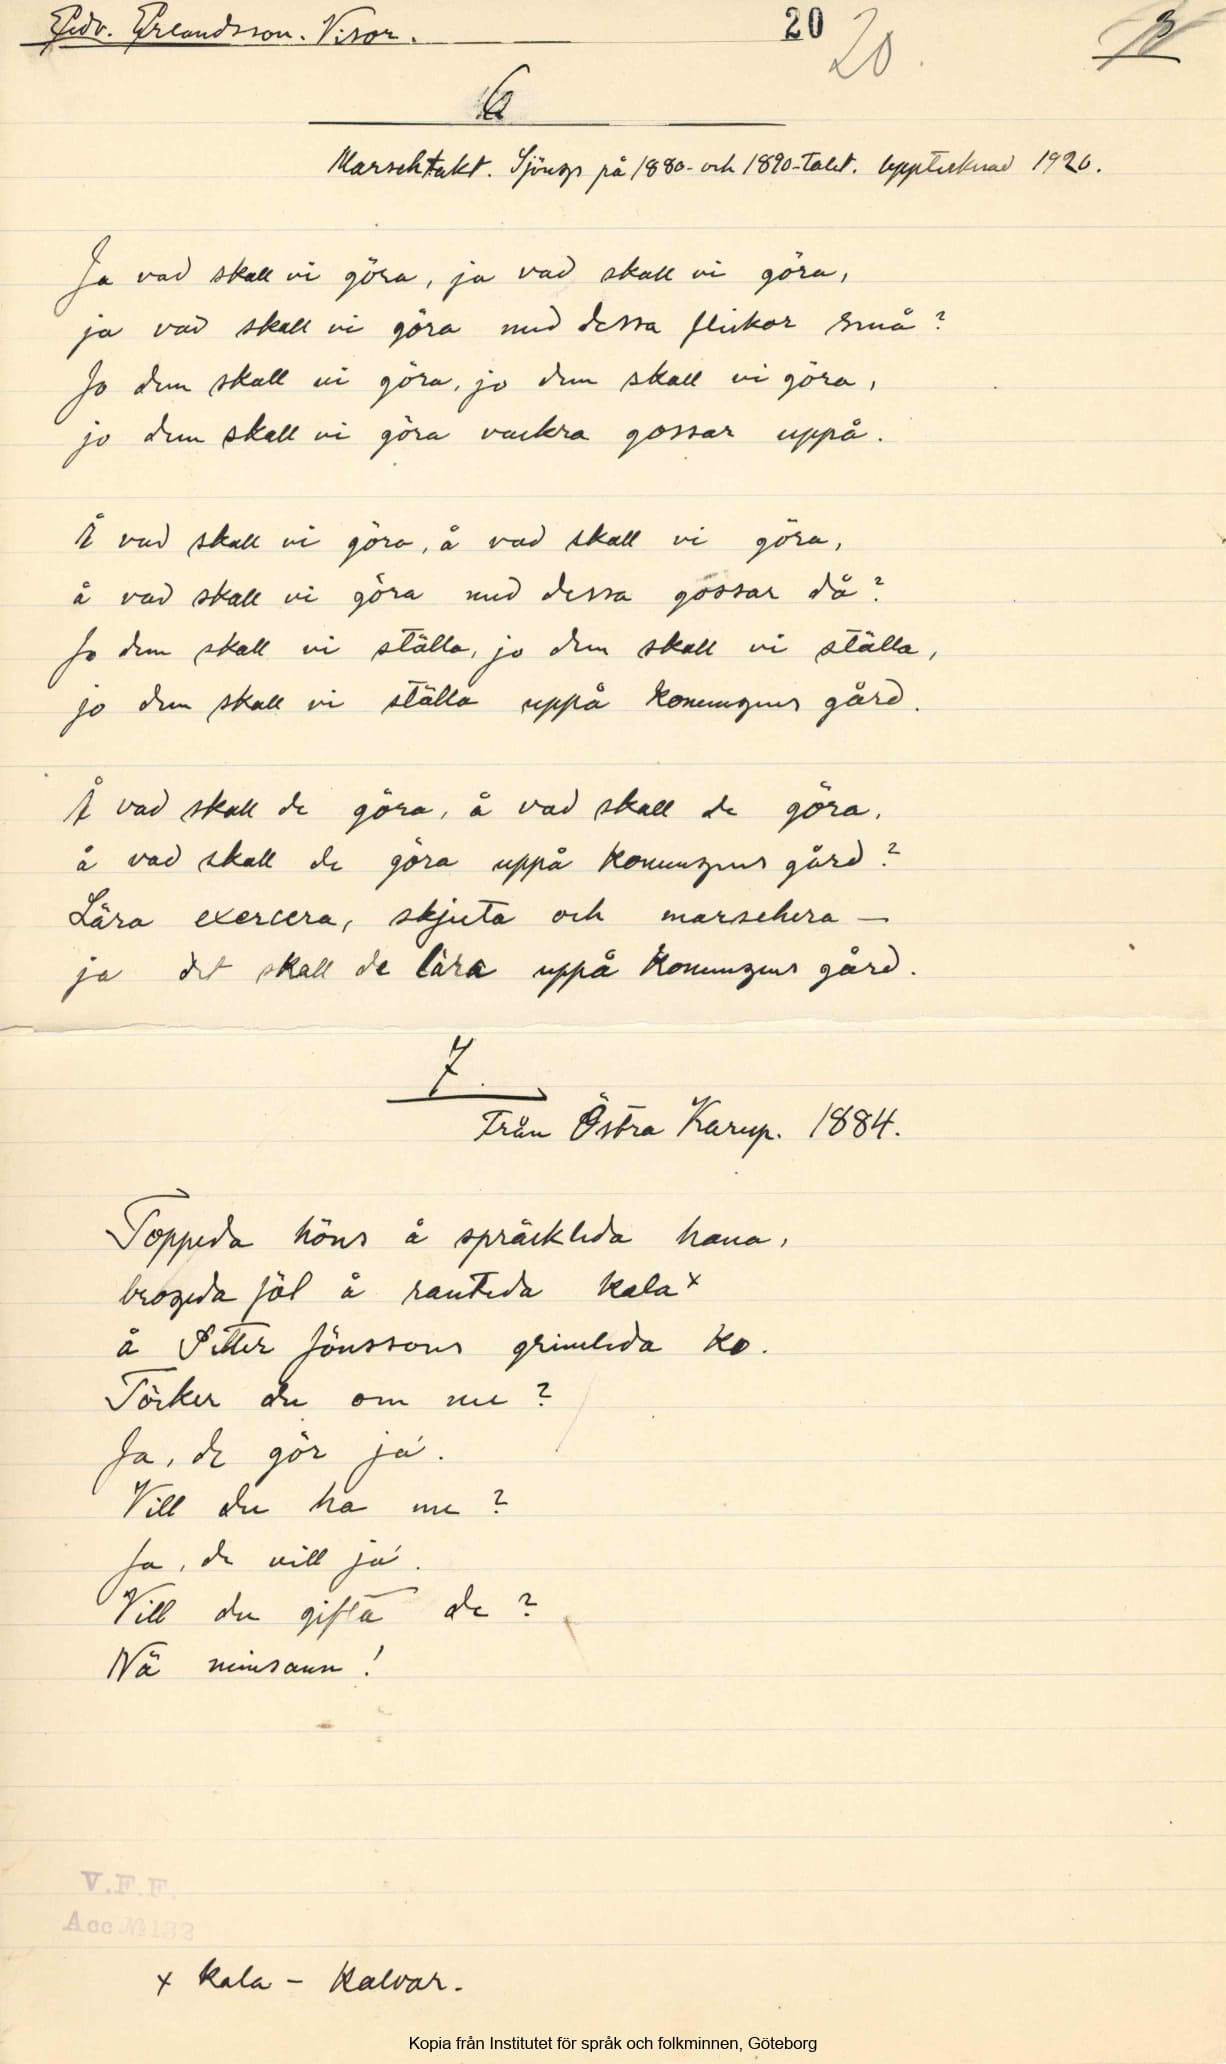 Edv. Erlandsson. Visor.
20 20.
6
Marschtakt. Sjöngs på 1880- och 1890-talet. Upptecknad 1926.
Ja vad skall vi göra, ja vad skall vi göra,
ja vad skall vi göra med dessa flickor små?
Jo dem skall vi göra, jo dem skall vi göra,
jo dem skall vi göra vackra gossar uppå.
Å vad skall vi göra, å vad skall vi göra,
å vad skall vi göra med dessa gossar då?
Jo dem skall vi ställa, jo dem skall vi ställa,
jo dem skall vi ställa uppå konungens gård.
Å vad skall de göra, å vad skall de göra,
å vad skall de göra uppå konungens gård?
Lära exercera, skjuta och marschera —
ja det skall de lära uppå konungens gård.
7.
Från Östra Karup. 1884.
Toppeda höns å spräckleda hana,
brogeda föl å ranteda kala x
å Pitter Jönssons grimleda ko.
Törker du om me?
Ja, de gör ja.
Vill du ha me?
Ja, de vill ja.
Vill du gifta de?
Nä minsann!
V.F.F.
Acc № 133
x kala – kalvar.
Kopia från Institutet för språk och folkminnen, Göteborg